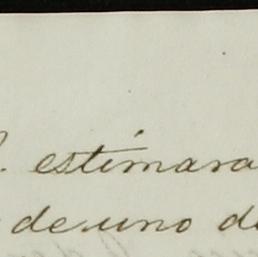 estimara
de uno de